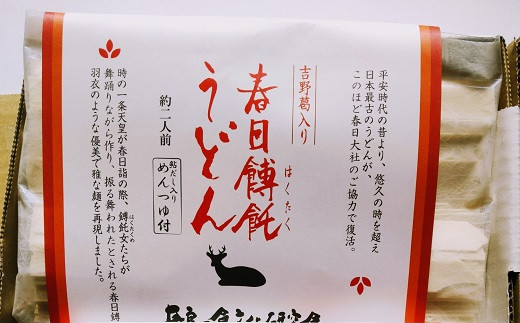 平安時代の昔より、悠久の時を超え
日本最古のうどんが、
このほど春日大社のご協力で復活。
吉野葛入り
春日餺飥
はくたく
うどん
約二人前
鮎だし入り
めんつゆ付
時の一条天皇が春日詣の際、餺飥女たちが
はくたくめ
舞踊りながら作り、振る舞われたとされる春日餺
羽衣のような優美で雅な麺を再現しました。